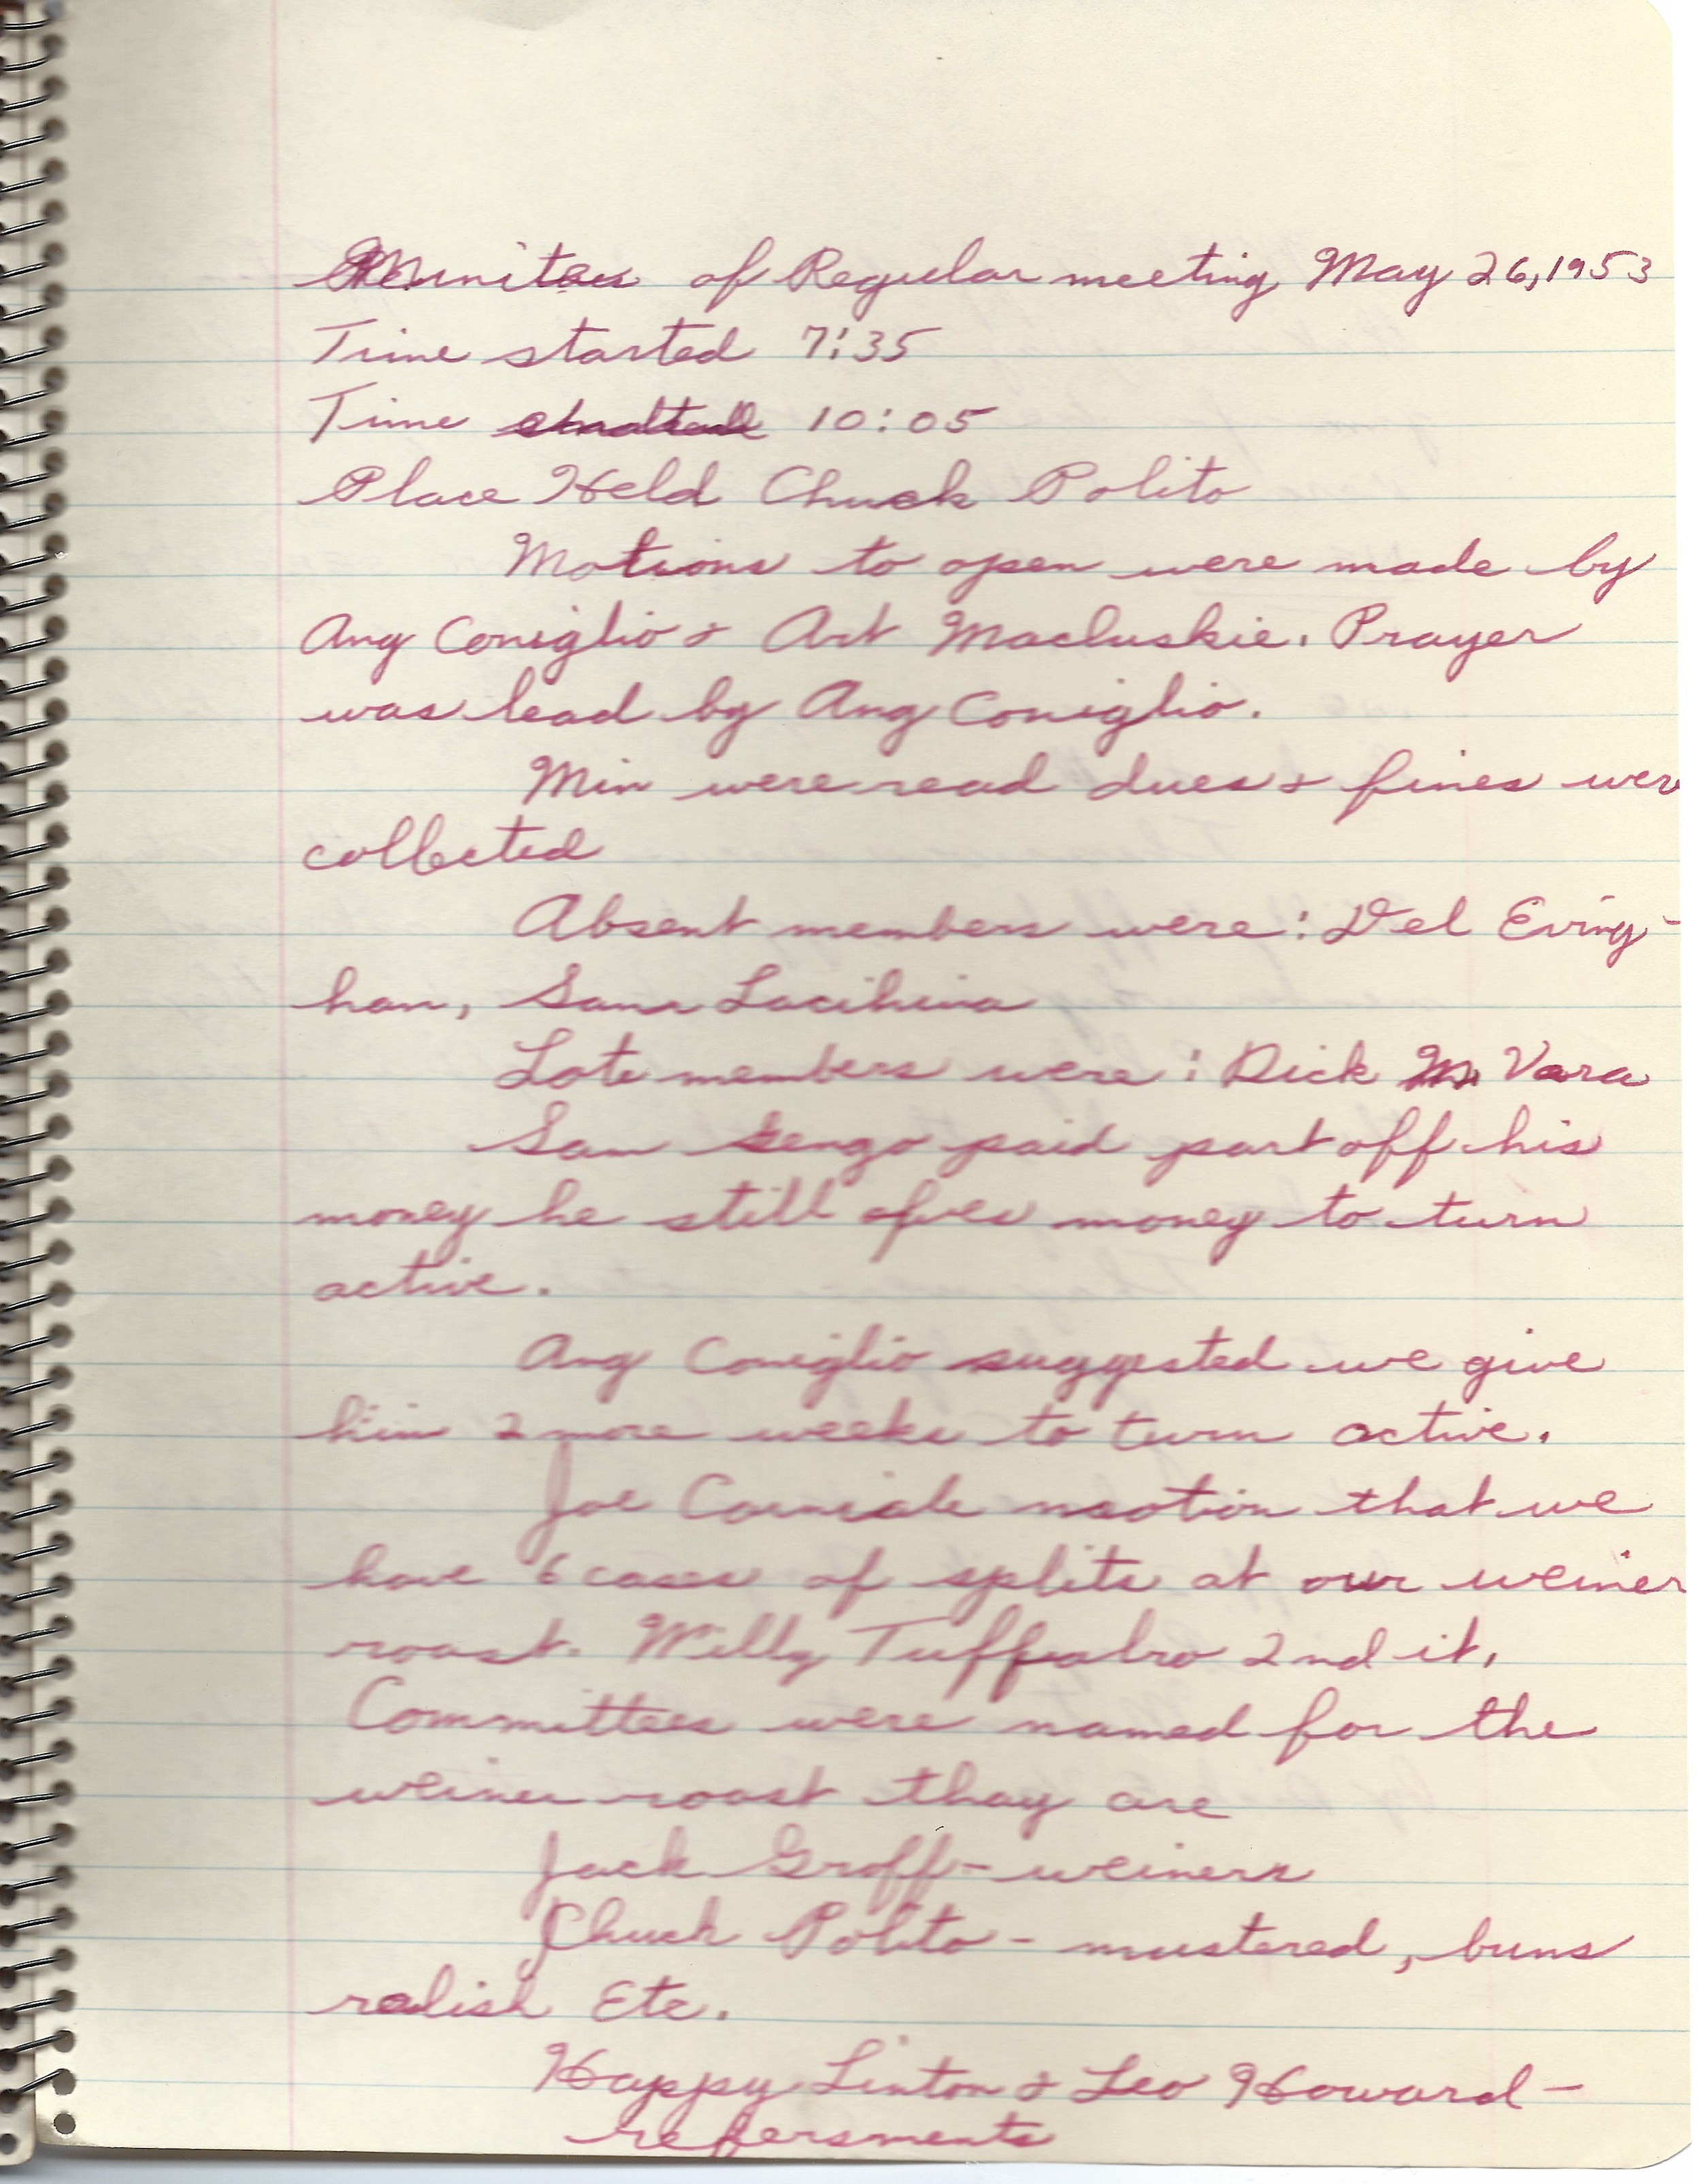 Minites of Regular meeting May 26, 1953
Time started 7:35
Time 10:05
Place Held Chuck Polito
Motions to open were made by
Ang Coniglio & Art Macluskie. Prayer
was lead by Ang Coniglio.
Min were read dues & fines were
collected
Absent members were: Del Eving-
han, Sam
Late members were: Dick M. Vara
Sam Sengo paid part off his
money he still owes money to turn
active.
Ang Coniglio suggested we give
him 2 more weeks to turn active.
Joe motion that we
have 6 cases of splits at our weiner
roast. Willy 2nd it.
Committees were named for the
weiner roast thay are
Jack Groff - weiners
Chuck Polito - mustered, buns
ralish Etc.
Happy Linton & Leo Howard -
refersments